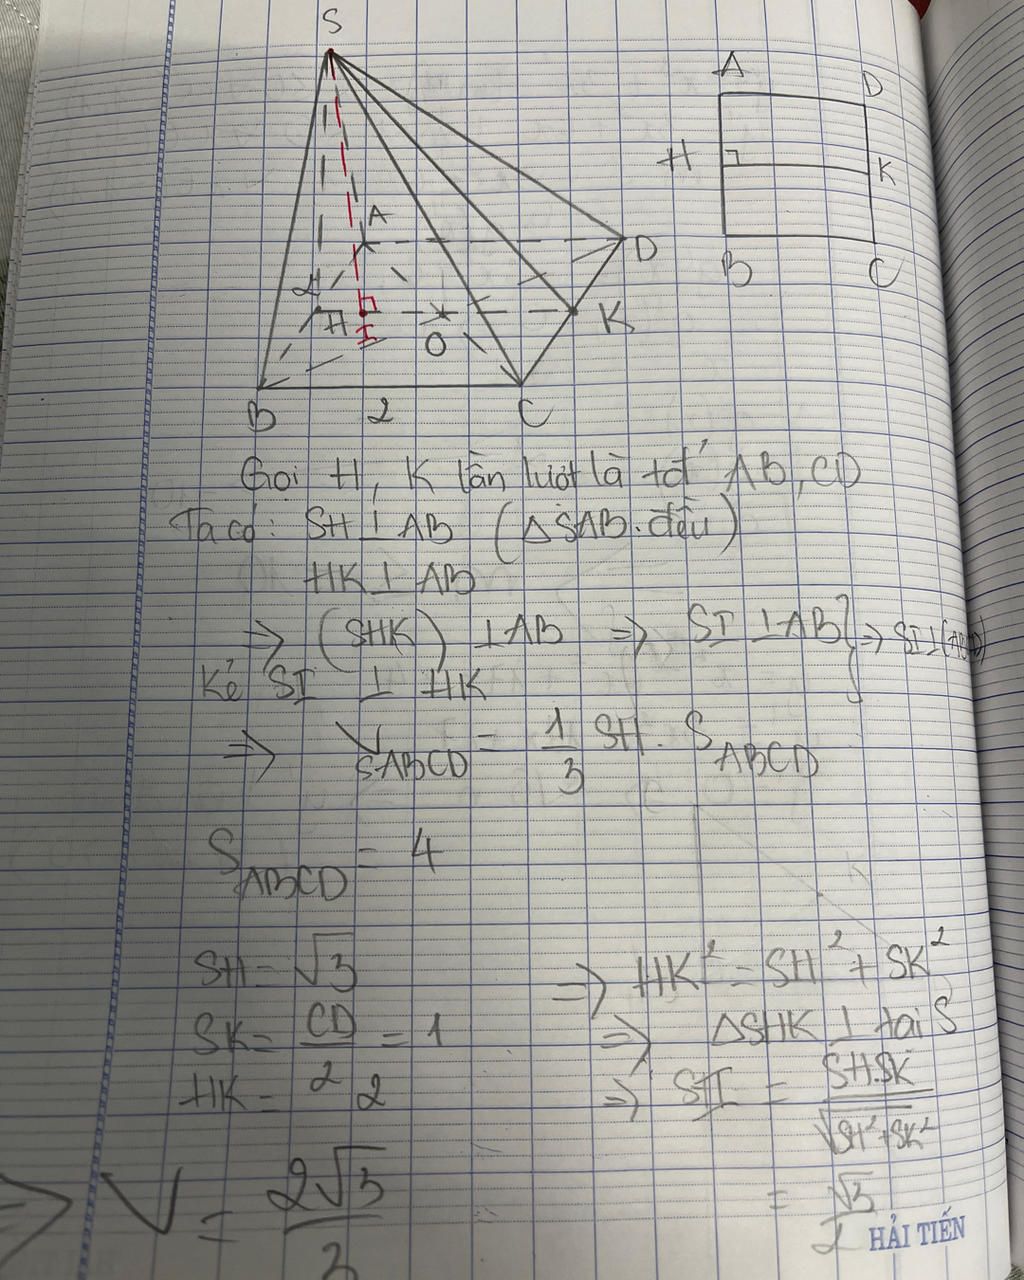 S
A
D
H
K
B
C
A
D
H
I
O
K
B
2
C
Gọi H, K lần lượt là tđ AB, CD
Ta có: SH ⊥ AB (ΔSAB đều)
HK ⊥ AB
=> (SHK) ⊥ AB => SI ⊥ AB } => SI ⊥ (ABCD)
Kẻ SI ⊥ HK
=> V_SABCD = 1/3 SH. S_ABCD
S_ABCD = 4
SH = √3 => HK² = SH² + SK²
SK = CD/2 = 1 => ΔSHK ⊥ tại S
HK = 2 => SI = SH.SK/√(SH²+SK²)
= √3/2
=> V = 2√3/3
HẢI TIẾN